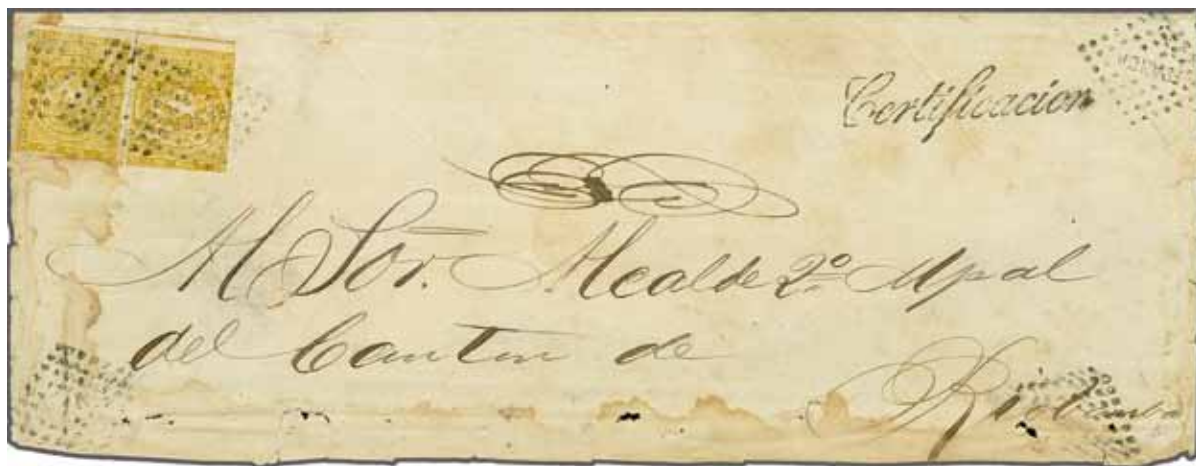 Certificacion
Al Sor. Alcalde 2º Mpal
del Canton de
Riobamba